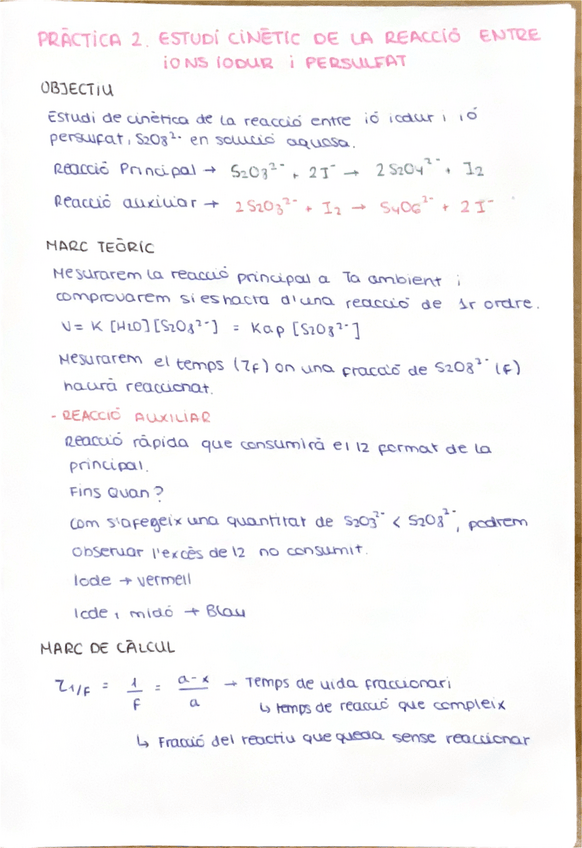 PRÀCTICA 2. ESTUDI CINÈTIC DE LA REACCIÓ ENTRE
IONS IODUR I PERSULFAT
OBJECTIU
Estudi de cinètica de la reacció entre ió iodur i ió
persulfat, S2O8²⁻ en solució aquosa.
Reacció Principal → S2O8²⁻ + 2I⁻ → 2SO4²⁻ + I2
Reacció auxiliar → 2S2O3²⁻ + I2 → S4O6²⁻ + 2I⁻
MARC TEÒRIC
Mesurarem la reacció principal a Ta ambient i
comprovarem si es tracta d'una reacció de 1r ordre.
V = K [H2O][S2O8²⁻] = Kap [S2O8²⁻]
Mesurarem el temps (τF) on una fracció de S2O8²⁻ (f)
haurà reaccionat.
- REACCIÓ AUXILIAR
Reacció ràpida que consumirà el I2 format de la
principal.
Fins Quan?
Com s'afegeix una quantitat de S2O3²⁻ < S2O8²⁻, podrem
observar l'excés de I2 no consumit.
Iode → vermell
Iode i midó → Blau
MARC DE CÀLCUL
τ1/F = 1/F = a-x/a → Temps de vida fraccionari
↳ temps de reacció que compleix
↳ Fracció del reactiu que queda sense reaccionar